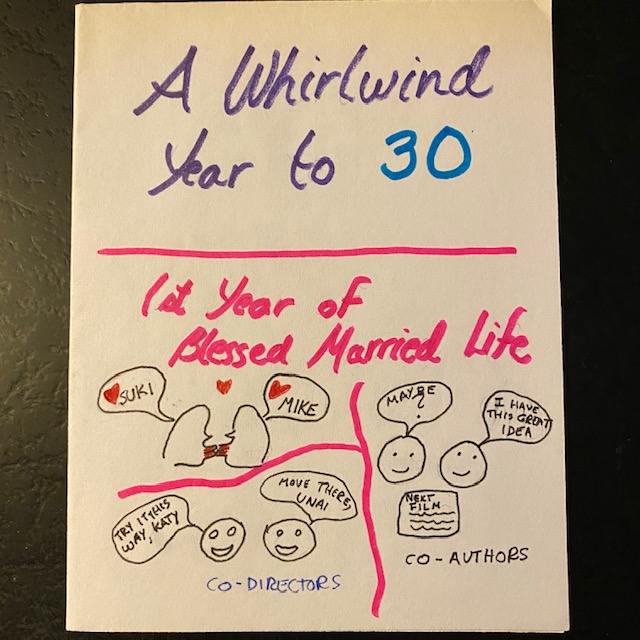 A Whirlwind
Year to 30
1st Year of
Blessed Married Life
SUKI
MIKE
MAYBE
?
I HAVE
THIS GREAT
IDEA
NEXT
FILM
CO-AUTHORS
TRY IT THIS
WAY, KATY
MOVE THERE,
UNAI
CO-DIRECTORS